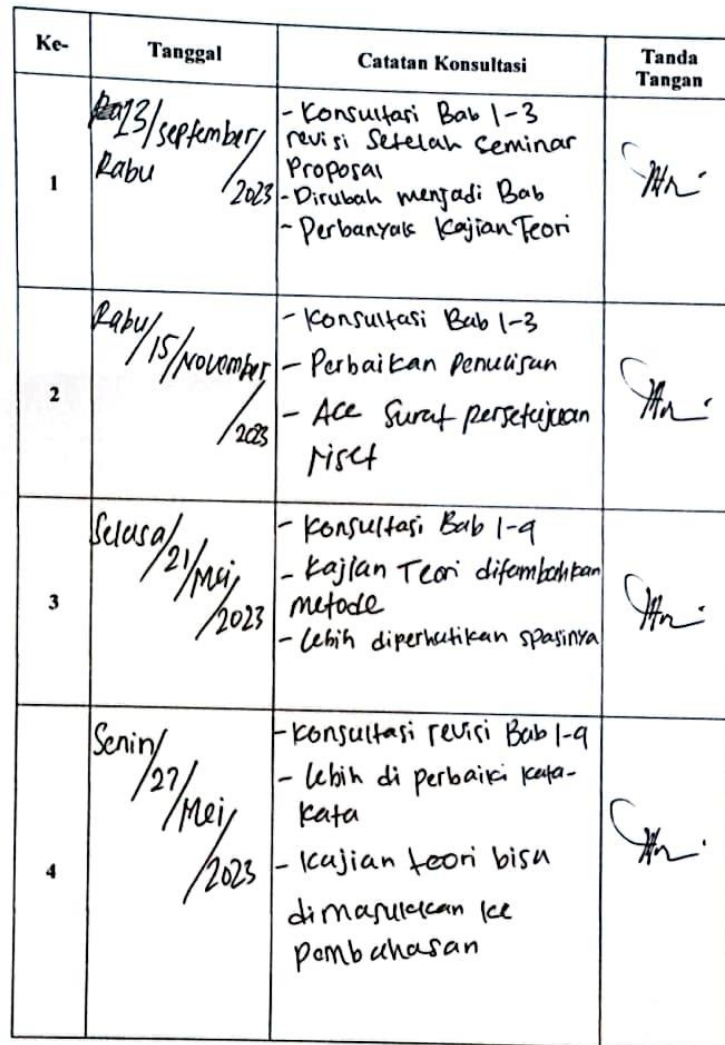 Ke-
Tanggal
Catatan Konsultasi
Tanda
Tangan
1
13/September/
Rabu
2023
- Konsultasi Bab 1-3
revisi Setelah Seminar
Proposal
- Dirubah menjadi Bab
- Perbanyak Kajian Teori
2
Rabu/15/November
/2023
- Konsultasi Bab 1-3
- Perbaikan Penulisan
- Acc Surat persetujuan
riset
3
Selasa/21/Mei/
2023
- Konsultasi Bab 1-4
- Kajian Teori ditambahkan
metode
- Lebih diperhatikan spasinya
4
Senin/27/Mei/
2023
- Konsultasi revisi Bab 1-4
- Lebih di perbaiki kata-
kata
- Kajian teori bisa
dimasukkan ke
pembahasan